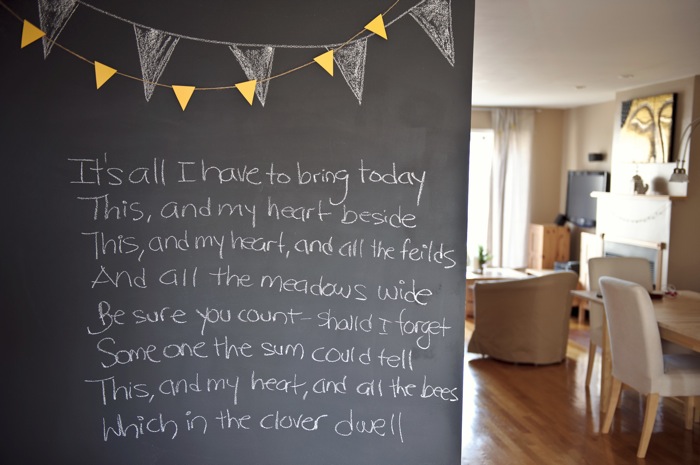 It's all I have to bring today
This, and my heart beside
This, and my heart, and all the feilds
And all the meadows wide
Be sure you count-should I forget
Some one the sum could tell
This, and my heart, and all the bees
Which in the clover dwell